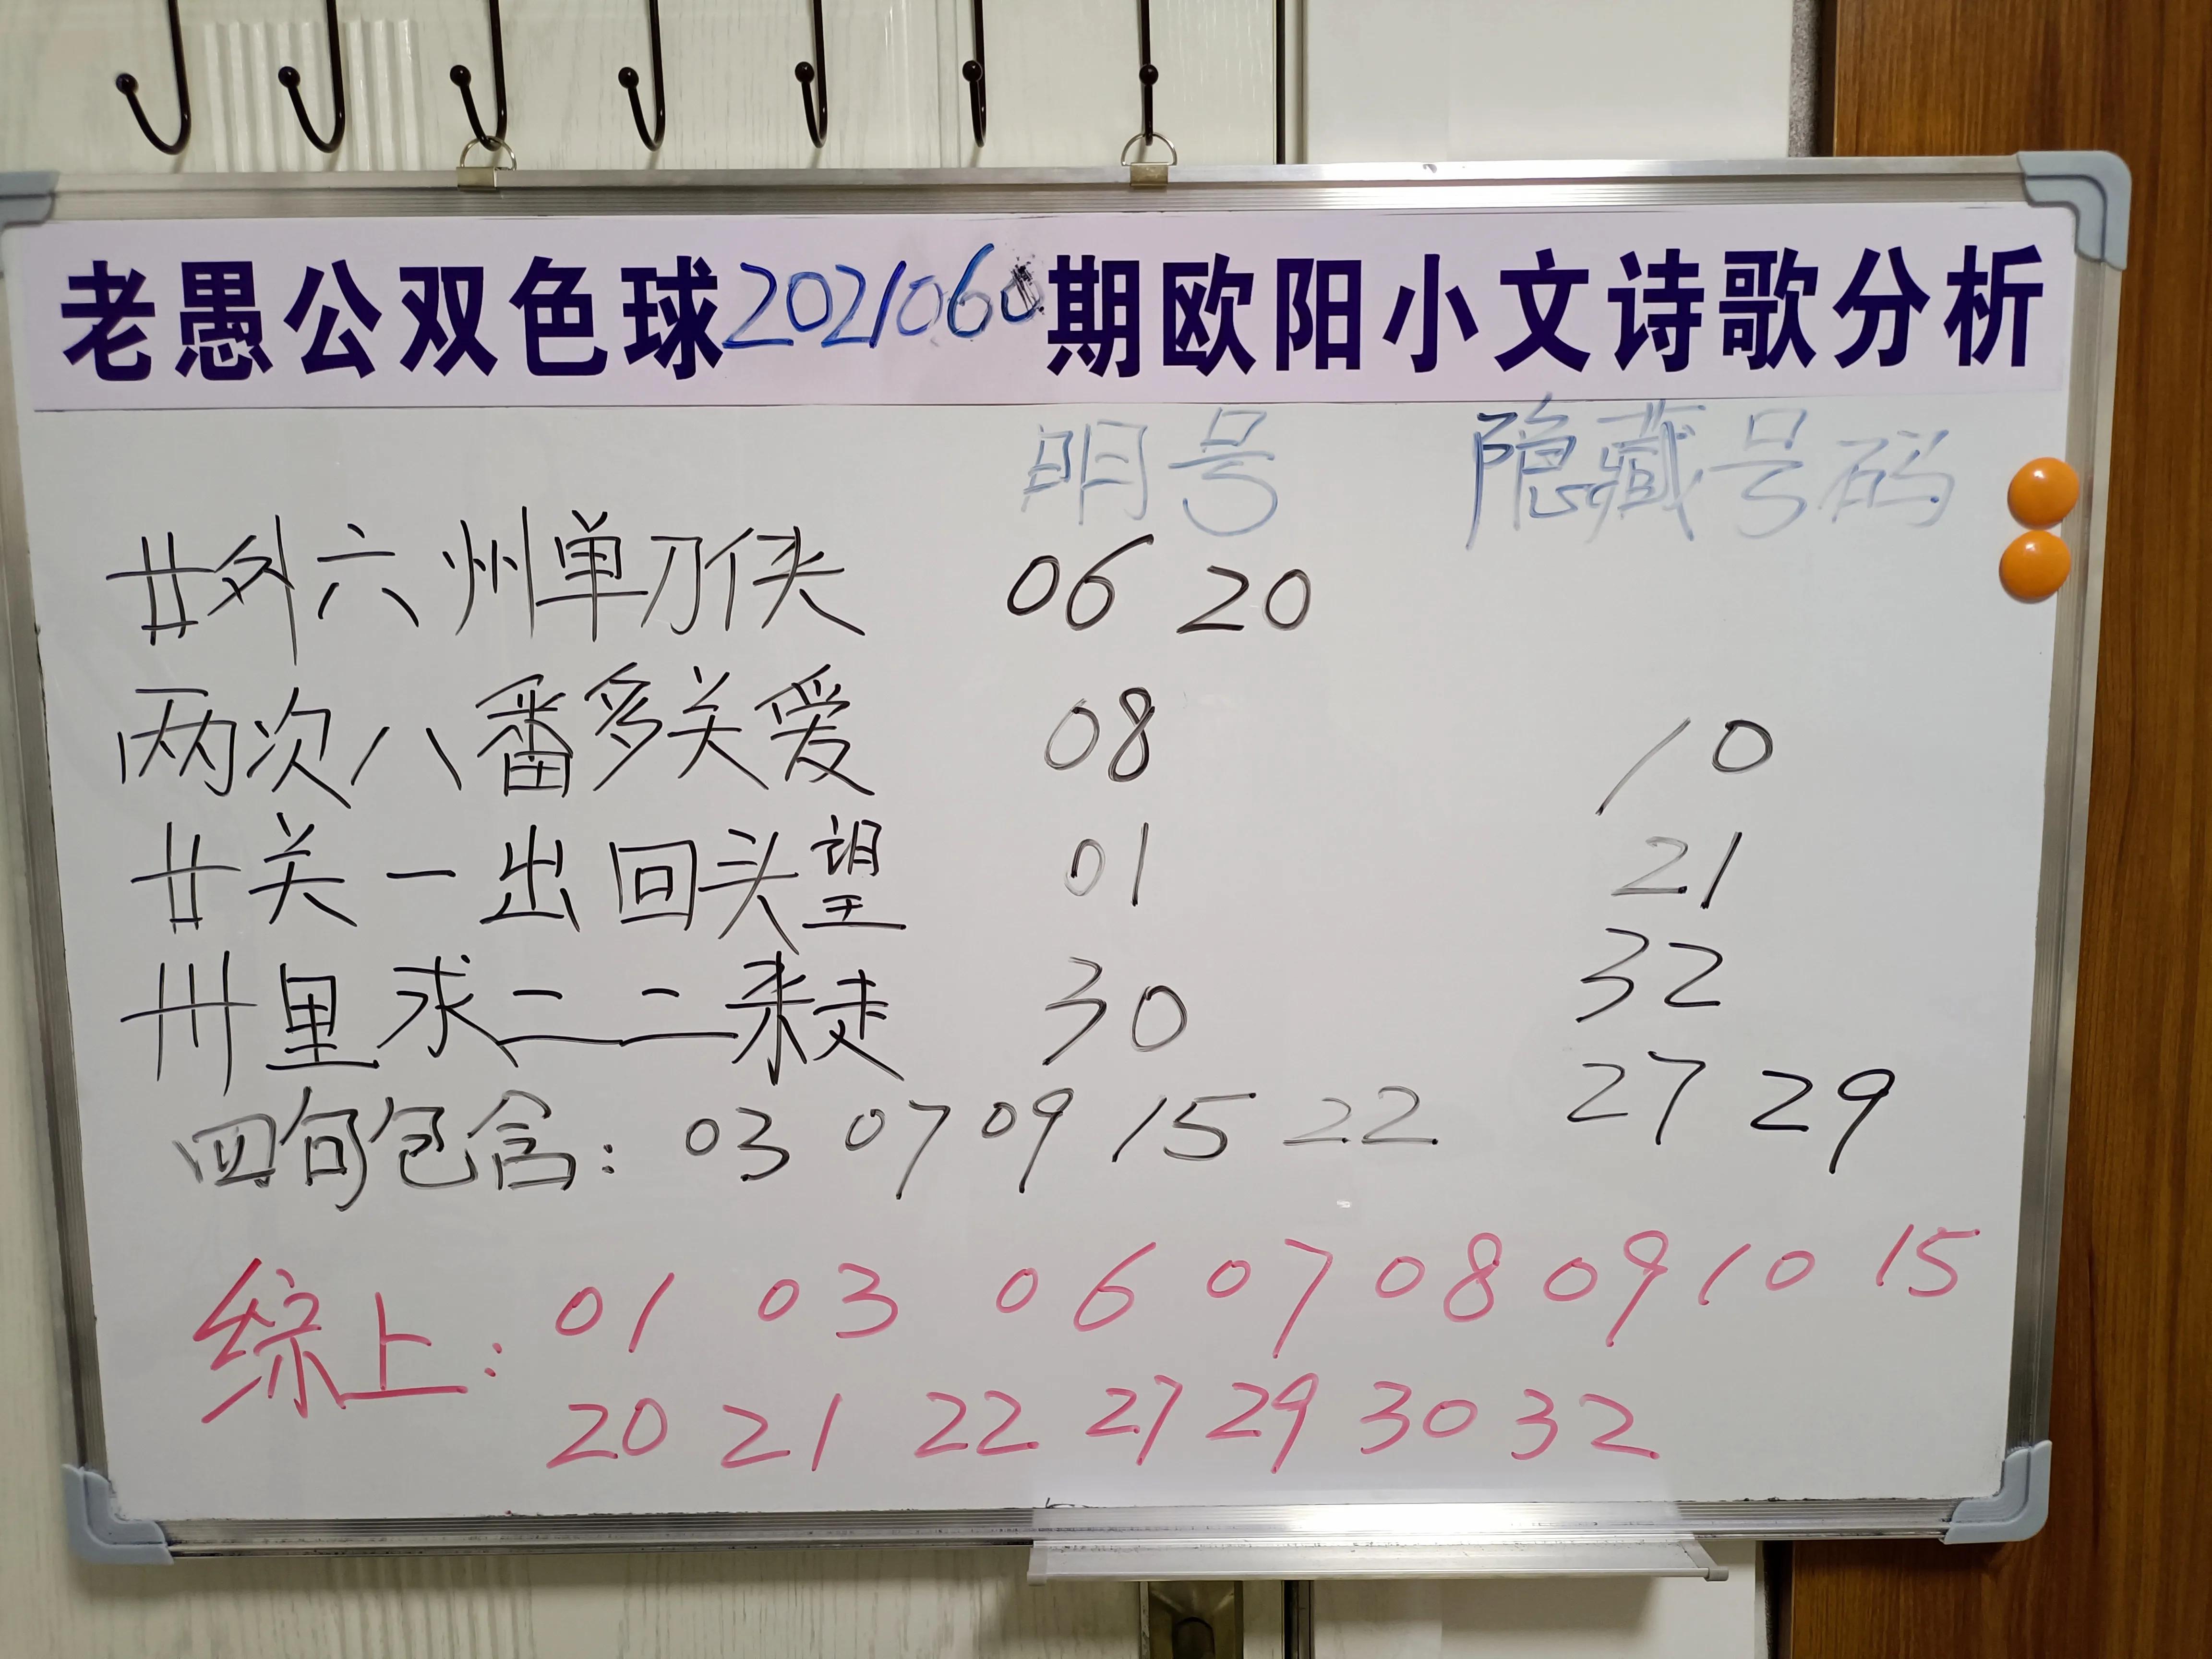 老愚公双色球2021060期欧阳小文诗歌分析
明号 隐藏号码
廿外六州单刀侠 06 20
两次八番多关爱 08 10
廿关一出回头望 01 21
卅里求二二来走 30 32
四句包含: 03 07 09 15 22 27 29
综上: 01 03 06 07 08 09 10 15
20 21 22 27 29 30 32